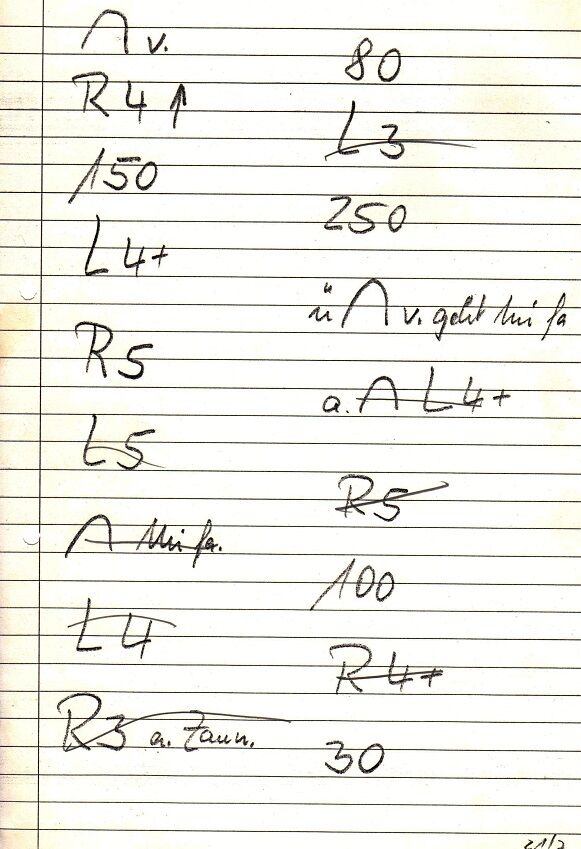 v.
R 4 ↑
150
L 4+
R 5
L 5
fa.
L 4
R 3 a. Zaun.
80
L 3
250
ü v. geht fa
a. L 4+
R 5
100
R 4+
30